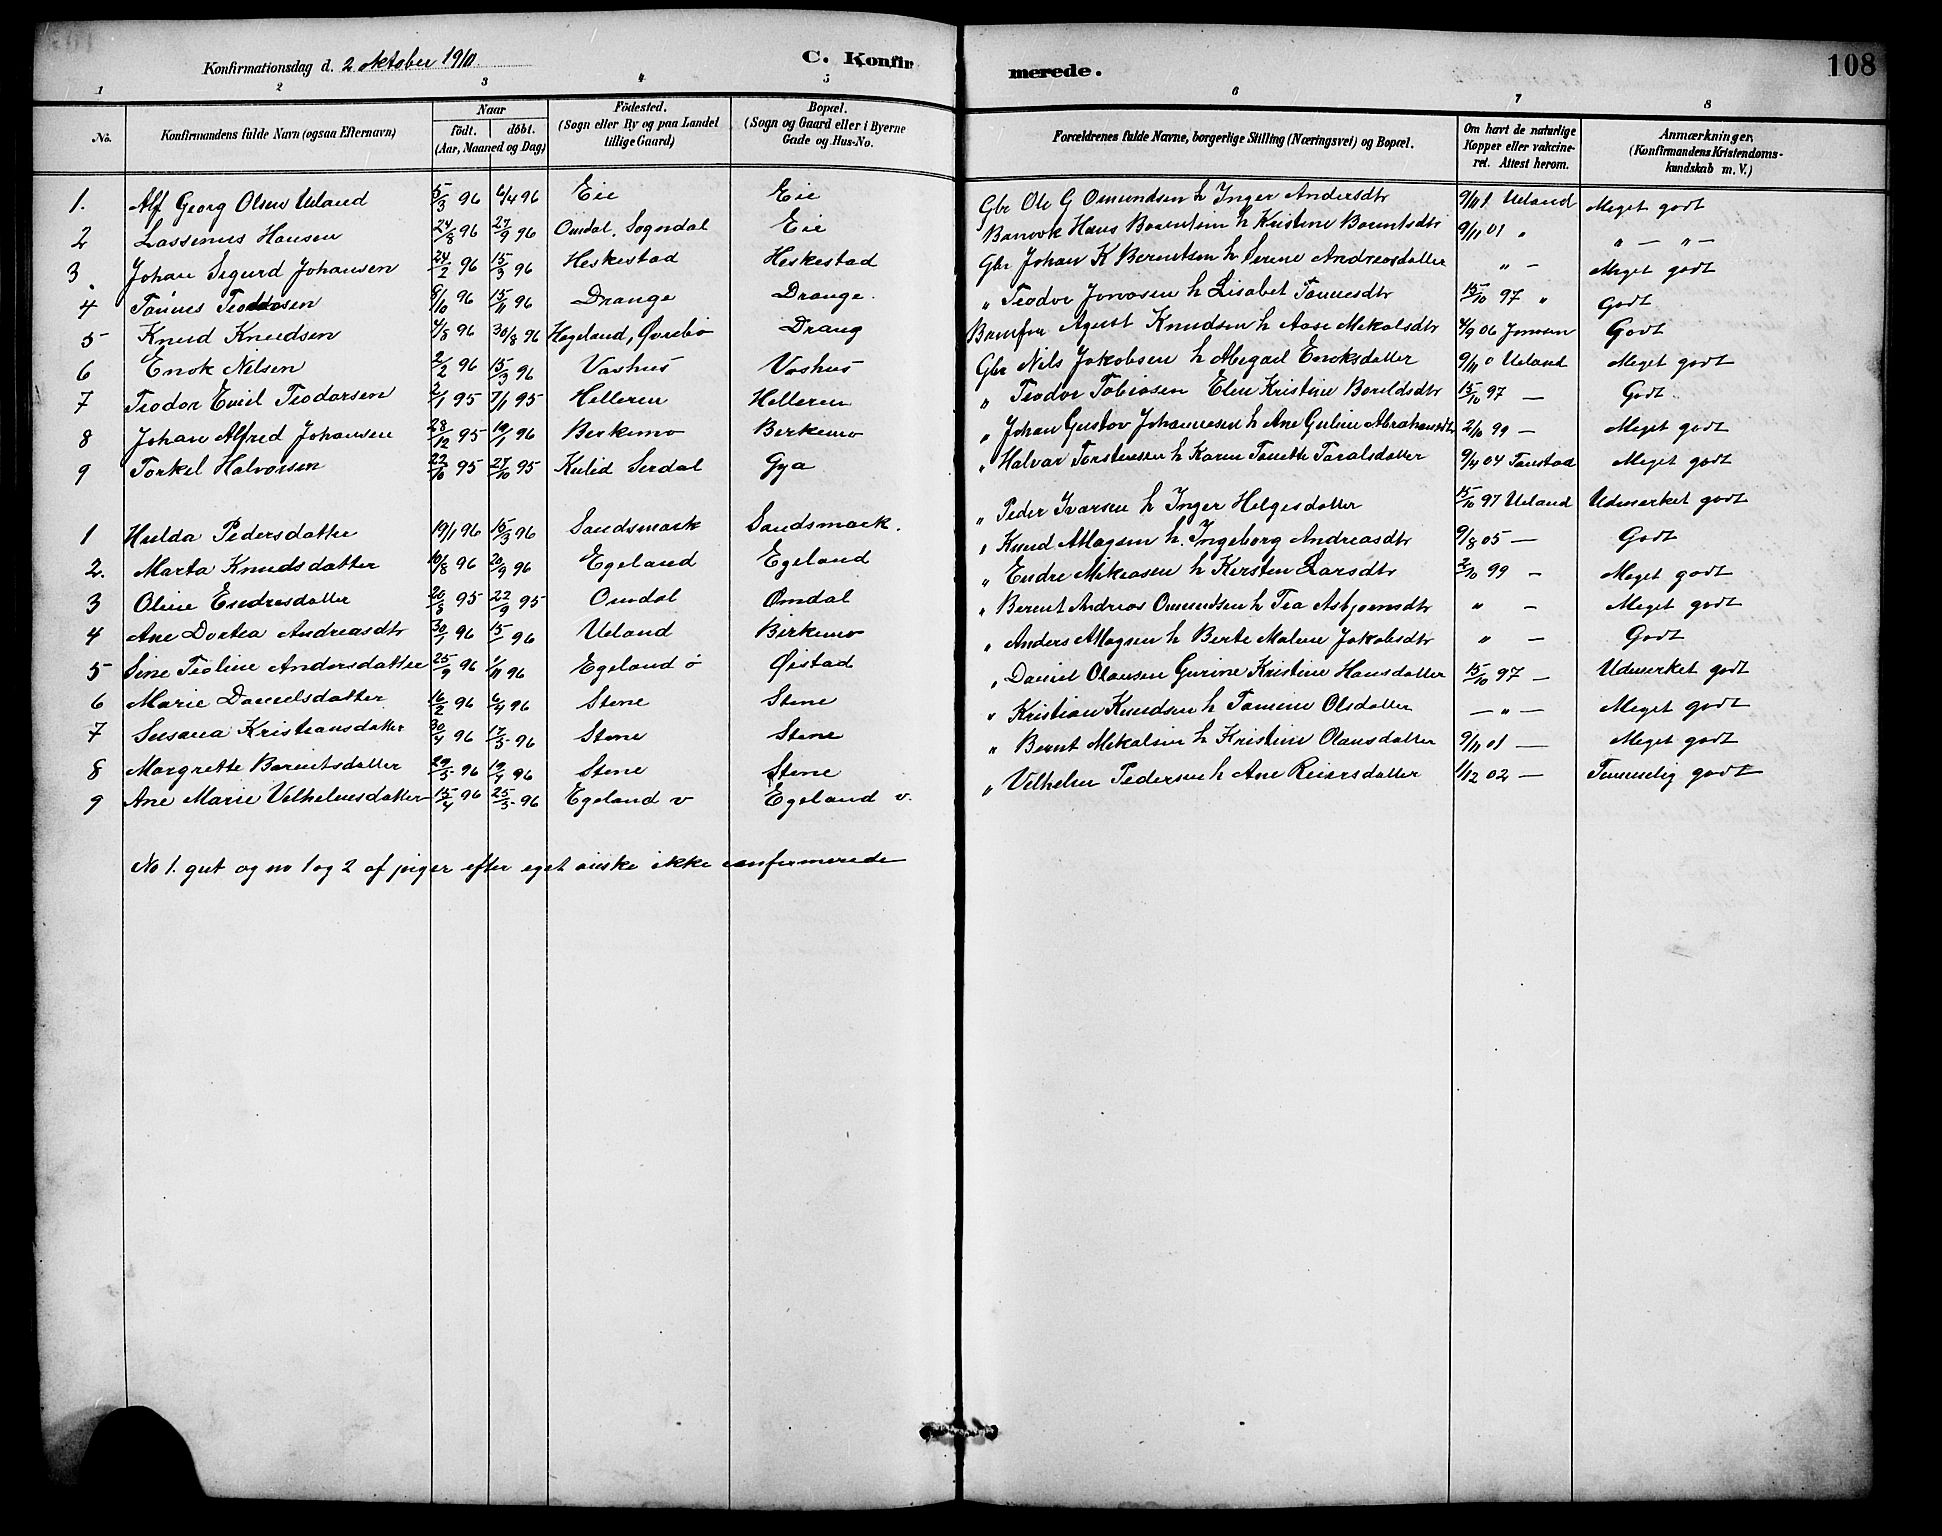 Konfirmationsdag d. 2 oktober 1910
C. Konfir merede. 108
1 2 3 4 5 6 7 8
No. Konfirmandens fulde Navn (ogsaa Efternavn) Naar født. døbt. (Aar, Maaned og Dag) Fødested. (Sogn eller By og paa Landet tillige Gaard) Bopæl. (Sogn og Gaard eller i Byerne Gade og Hus-No. Forældrenes fulde Navne, borgerlige Stilling (Næringsvei) og Bopæl. Om havt de naturlige Kopper eller vakcineret. Attest herom. Anmærkninger. (Konfirmandens Kristendomskundskab m. V.)
1. Alf Georg Olsen Ueland 5/3 96 6/4 96 Eie Eie Gbr Ole G Omundsen h Inger Andersdtr 9/11 1 Ueland Meget godt
2 Lassenus Hansen 24/8 96 27/9 96 Omdal, Sogndal Eie Hans Berentsen h Kristine Berntsdtr 9/11 01 " " — " —
3. Johan Sigurd Johansen 24/2 96 15/3 96 Heskestad Heskestad Gbr Johan K Berntsen h Serine Andreasdatter " — Meget godt
4 Tønnes Teodorsen 8/10 96 15/11 96 Drange Drange. " Teodor Jonasen h Lisabet Tønnesdtr 15/10 97 " Godt
5 Knud Knudsen 4/8 96 30/8 96 Hageland, Øvrebø Drang Agust Knudsen h Aase Mekalsdtr 4/9 06 Jonsen Godt
6 Enok Nilsen 2/2 96 15/3 96 Vashus Vashus Gbr Nils Jakobsen h Abegael Enoksdatter 9/11 0 Ueland Meget godt
7 Teodor Emil Teodorsen 2/1 95 7/11 95 Helleren Helleren " Teodor Tobiasen Elen Kristine Bareldsdtr 15/10 97 — Godt
8 Johan Alfred Johansen 28/12 95 19/1 96 Berkemo Berkemo " Johan Gustav Johannesen h Ane Guline Abrahamsdtr 2/10 99 — Meget godt
9 Torkel Halvorsen 22/10 95 27/10 95 Kulid Serdal Gya " Halvar Torstensen h Karen Tonette Taralsdatter 9/4 04 Tonstad Meget godt
1 Hulda Pedersdatter 19/1 96 15/3 96 Sandsmark Sandsmark. " Peder Ivarsen h Inger Helgesdatter 15/10 97 Ueland Udmerket godt
2. Marta Knudsdatter 10/8 96 20/9 96 Egeland Egeland " Knud Magsen h. Ingeborg Andreasdtr 9/8 05 — Godt
3 Oline Endresdatter 20/3 95 22/9 95 Omdal Omdal " Endre Mekiasen h Kersten Larsdtr 2/10 99 — Meget godt
4 Ane Dortea Andreasdtr 30/1 96 15/ 96 Ueland Birkemo " Bernt Andreas Omundsen h Tea Asbjørnsdtr " — Meget godt
5 Sine Teoline Andersdatter 25/9 96 1/11 96 Egeland ø Øistad " Anders Magsen h Berte Malene Jakobsdtr " — Godt
6 Marie Danielsdatter 16/2 96 6/4 96 Stene Stene " Daniel Olausen Gurine Kristine Hansdatter 15/10 97 — Udmerket godt
7 Susana Kristiansdatter 30/4 96 17/5 96 Stene Stene " Kristian Knudsen h Tomine Olsdatter — " — Meget godt
8 Margrette Berntsdatter 29/5 96 19/7 96 Stene Stene " Bernt Mekalsen h Kristine Olausdatter 9/11 01 — Meget godt
9 Ane Marie Velhelmsdatter 15/4 96 25/5 96 Egeland v Egeland v. " Velhelm Pedersen h Ane Reiersdatter 1/12 02 — Temmelig godt
No 1. gut og no 1 og 2 af piger efter eget ønske ikke confirmerede